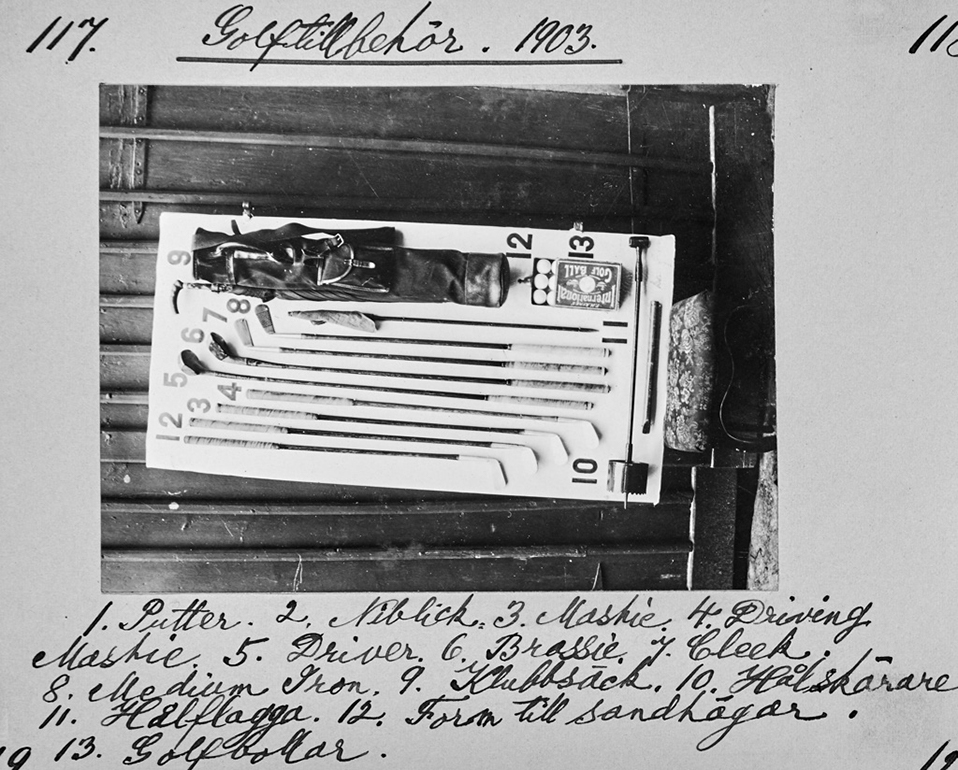 117.
Golftillbehör. 1903.
118
9
12
13
GOLF BALL
International
8
7
6
11
5
4
3
12
10
1. Putter. 2. Niblick. 3. Mashie. 4. Driving
Mashie. 5. Driver. 6. Brassie. 7. Cleek.
8. Medium Iron. 9. Klubbsäck. 10. Hålskärare
11. Hålflagga. 12. Form till sandhögar.
13. Golfbollar.
19
12